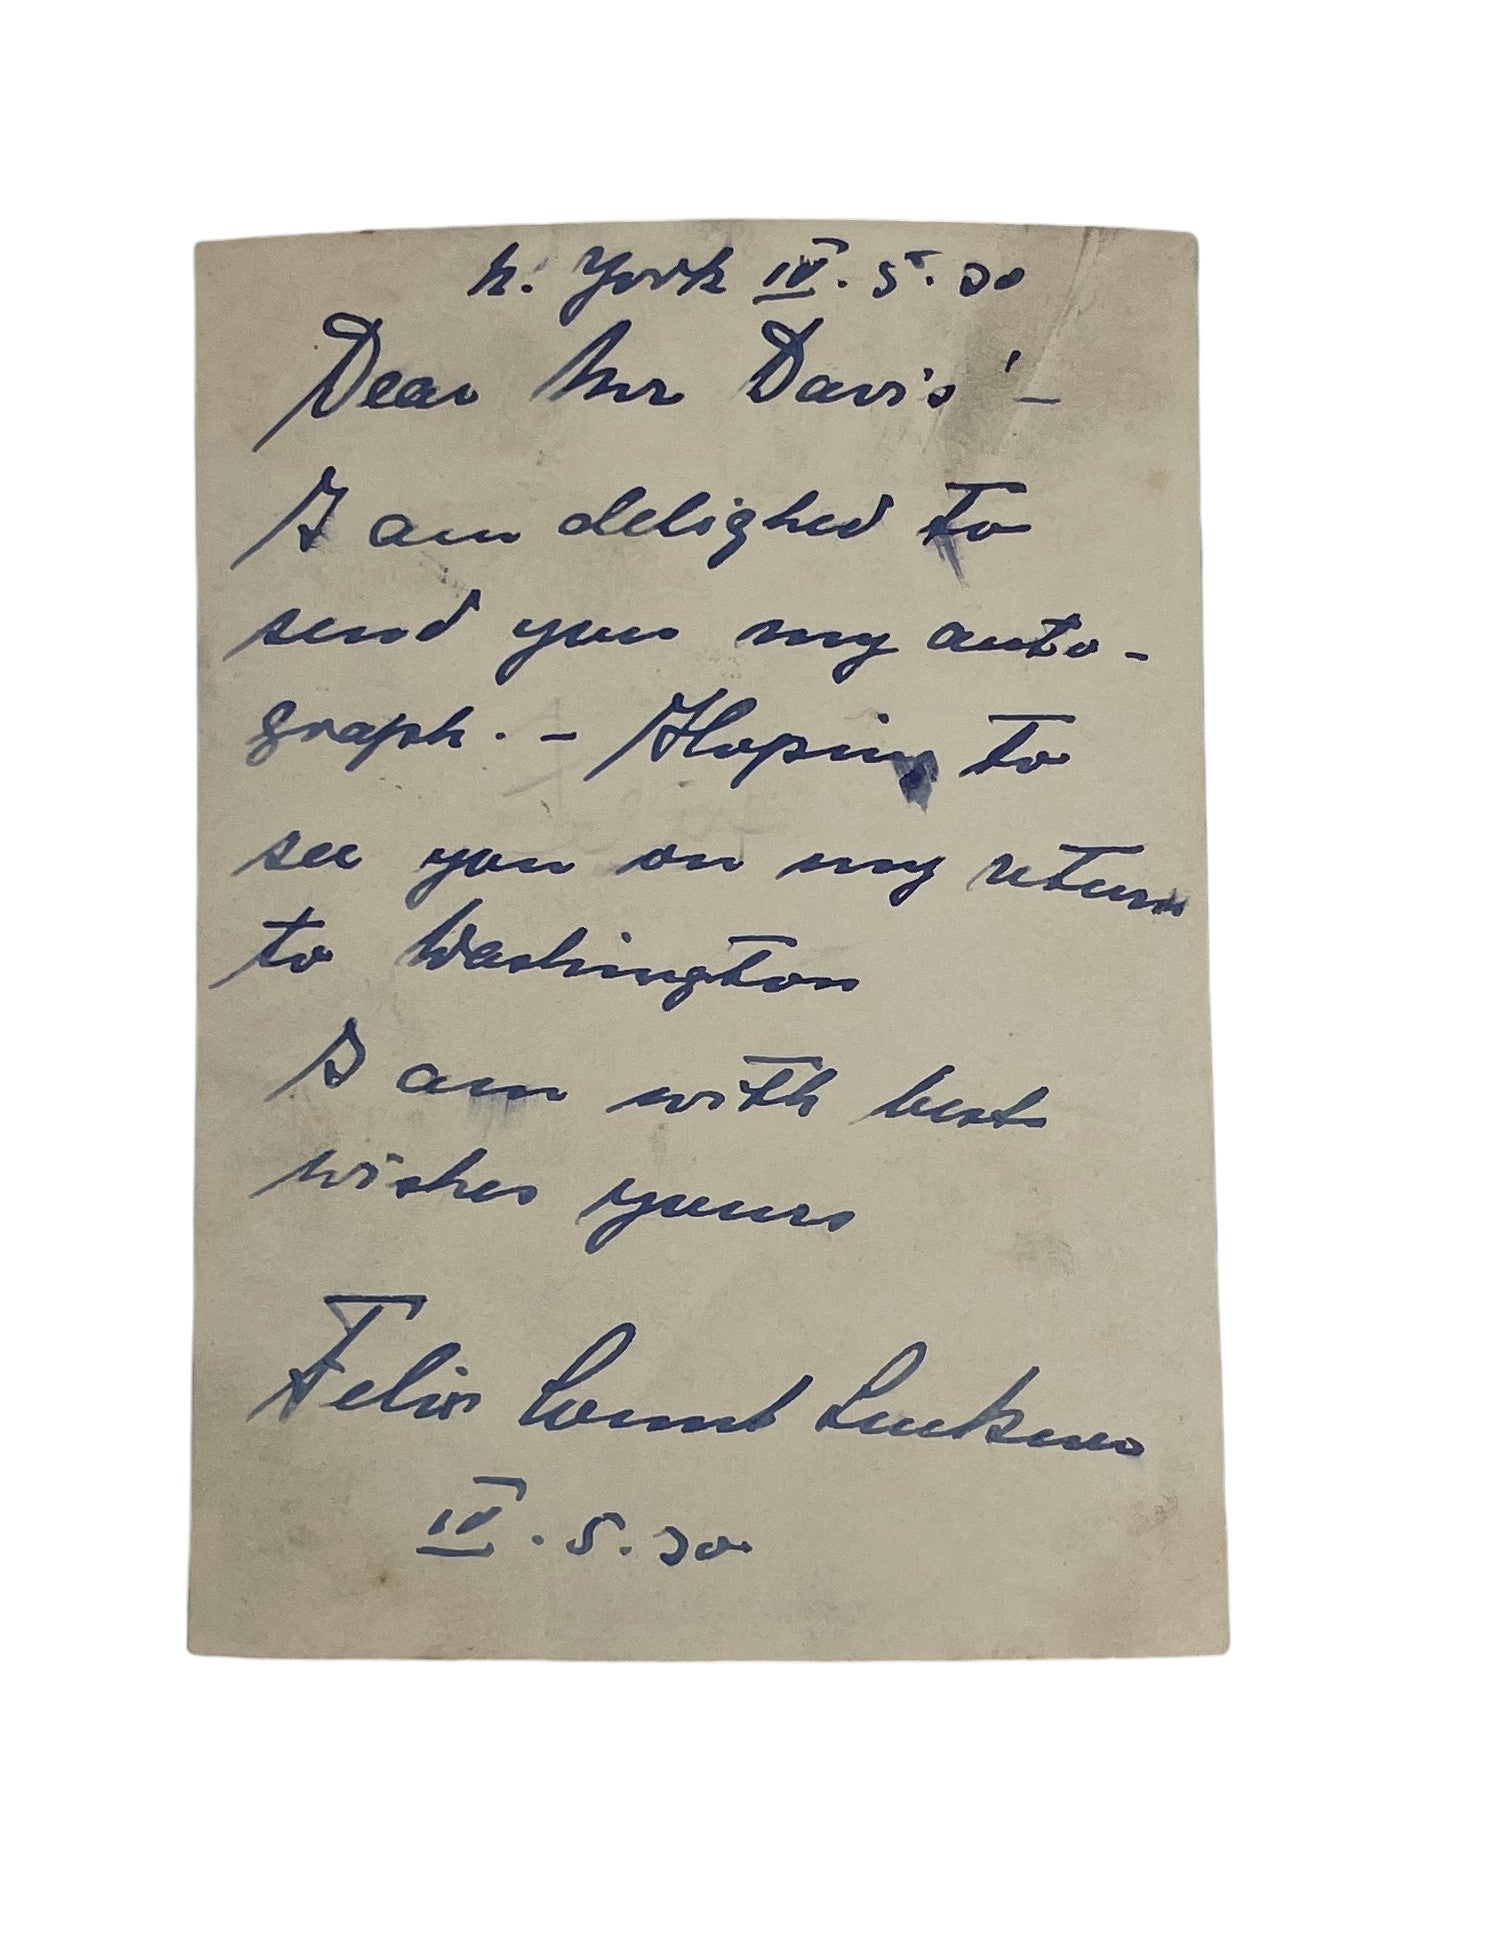 N. York IV. 5. 30
Dear Mr Davis! –
I am delighed to
send you my auto-
graph. – Hoping to
see you on my return
to Washington
I am with best
wishes yours
Felix Count Luckner
IV. 5. 30